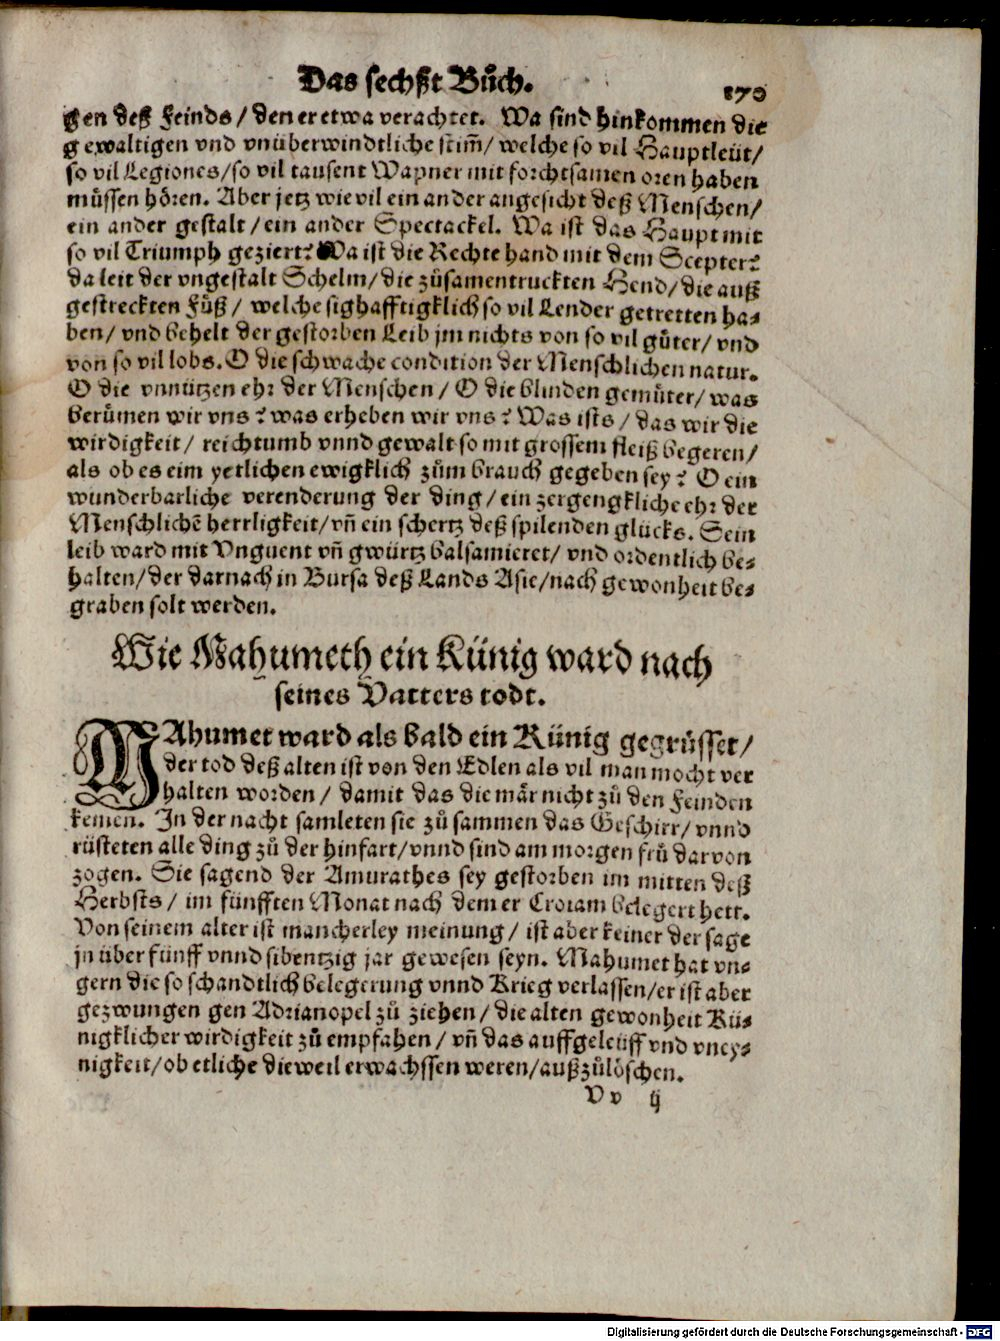 Das sechßt Bůch. 170
gen deß Feinds / den er etwa verachtet. Wa sind hinkommen die
gewaltigen vnd vnüberwindtliche stim̄ / welche so vil Hauptleüt /
so vil Legiones / so vil tausent Wapner mit forchtsamen oren haben
müssen hören. Aber jetz wie vil ein ander angesicht deß Menschen /
ein ander gestalt / ein ander Spectackel. Wa ist das Haupt mit
so vil Triumph geziert? Wa ist die Rechte hand mit dem Scepter?
da leit der vngestalt Schelm / die zůsamentruckten Hend / die auß
gestreckten Füß / welche sighafftigklich so vil Lender getretten ha⸗
ben / vnd behelt der gestorben Leib jm nichts von so vil güter / vnd
von so vil lobs. O die schwache condition der Menschlichen natur.
O die vnnützen ehr der Menschen / O die blinden gemüter / was
berümen wir vns? was erheben wir vns? Was ists / das wir die
wirdigkeit / reichtumb vnnd gewalt so mit grossem fleiß begeren /
als ob es eim yetlichen ewigklich zům brauch gegeben sey? O ein
wunderbarliche verenderung der ding / ein zergengkliche ehr der
Menschlichē herrligkeit / vn̄ ein schertz deß spilenden glücks. Sein
leib ward mit Vnguent vn̄ gwürtz balsamieret / vnd ordentlich be⸗
halten / der darnach in Bursa deß Lands Asie / nach gewonheit be⸗
graben solt werden.
Wie Mahumeth ein Künig ward nach
seines Vatters todt.
MAhumet ward als bald ein Künig gegrüsset /
der tod deß alten ist von den Edlen als vil man mocht ver
halten worden / damit das die mär nicht zů den Feinden
kemen. In der nacht samleten sie zů sammen das Geschirr / vnnd
rüsteten alle ding zů der hinfart / vnnd sind am morgen frů darvon
zogen. Sie sagend der Amurathes sey gestorben im mitten deß
Herbsts / im fünfften Monat nach dem er Croiam belegert hett.
Von seinem alter ist mancherley meinung / ist aber keiner der sage
jn über fünff vnnd sibentzig jar gewesen seyn. Mahumet hat vn⸗
gern die so schandtlich belegerung vnnd Krieg verlassen / er ist aber
gezwungen gen Adrianopel zů ziehen / die alten gewonheit Kü⸗
nigklicher wirdigkeit zů empfahen / vn̄ das auffgeleüff vnd vney⸗
nigkeit / ob etliche dieweil erwachssen weren / außzůlöschen.
Vv ij
Digitalisierung gefördert durch die Deutsche Forschungsgemeinschaft - DFG